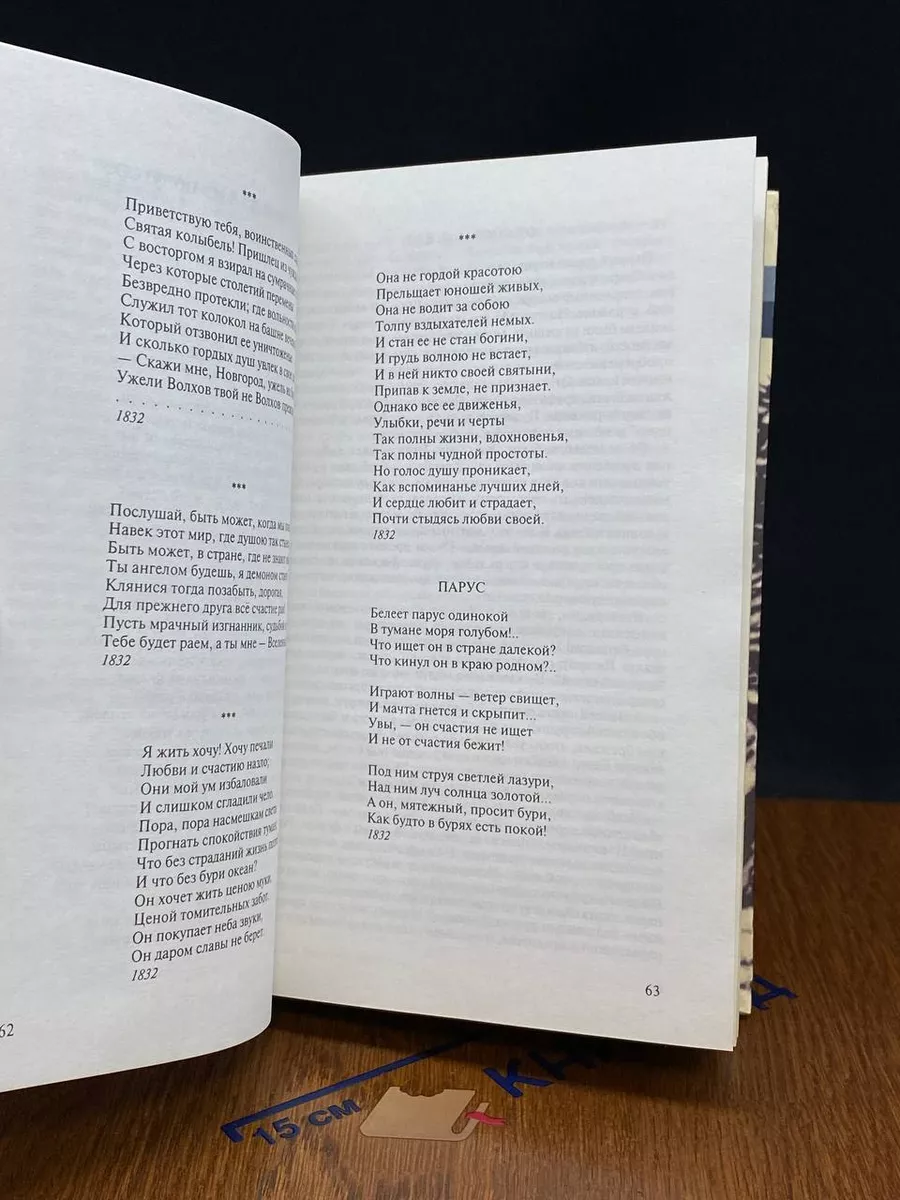 ***
Приветствую тебя, воинственных
Святая колыбель! Пришлец из
С восторгом я взирал на сумрачные
Через которые столетий перемены
Безвредно протекли; где вольности
Служил тот колокол на башне
Который отзвонил ее уничтоженье
И сколько гордых душ увлек в свое
— Скажи мне, Новгород, ужель их
Ужели Волхов твой не Волхов
1832
***
Послушай, быть может, когда мы
Навек этот мир, где душою так
Быть может, в стране, где не знают
Ты ангелом будешь, я демоном
Клянися тогда позабыть, дорогая,
Для прежнего друга всё счастие
Пусть мрачный изгнанник, судьбою
Тебе будет раем, а ты мне – Вселенной
1832
***
Я жить хочу! Хочу печали
Любви и счастию назло;
Они мой ум избаловали
И слишком сгладили чело.
Пора, пора насмешкам света
Прогнать спокойствия туман;
Что без страданий жизнь поэта
И что без бури океан?
Он хочет жить ценою муки,
Ценой томительных забот.
Он покупает неба звуки,
Он даром славы не берет.
1832
62
***
Она не гордой красотою
Прельщает юношей живых,
Она не водит за собою
Толпу вздыхателей немых.
И стан ее не стан богини,
И грудь волною не встает,
И в ней никто своей святыни,
Припав к земле, не признает.
Однако все ее движенья,
Улыбки, речи и черты
Так полны жизни, вдохновенья,
Так полны чудной простоты.
Но голос душу проникает,
Как вспоминанье лучших дней,
И сердце любит и страдает,
Почти стыдясь любви своей.
1832
ПАРУС
Белеет парус одинокой
В тумане моря голубом!..
Что ищет он в стране далекой?
Что кинул он в краю родном?..
Играют волны — ветер свищет,
И мачта гнется и скрыпит...
Увы, — он счастия не ищет
И не от счастия бежит!
Под ним струя светлей лазури,
Над ним луч солнца золотой...
А он, мятежный, просит бури,
Как будто в бурях есть покой!
1832
63
15 см